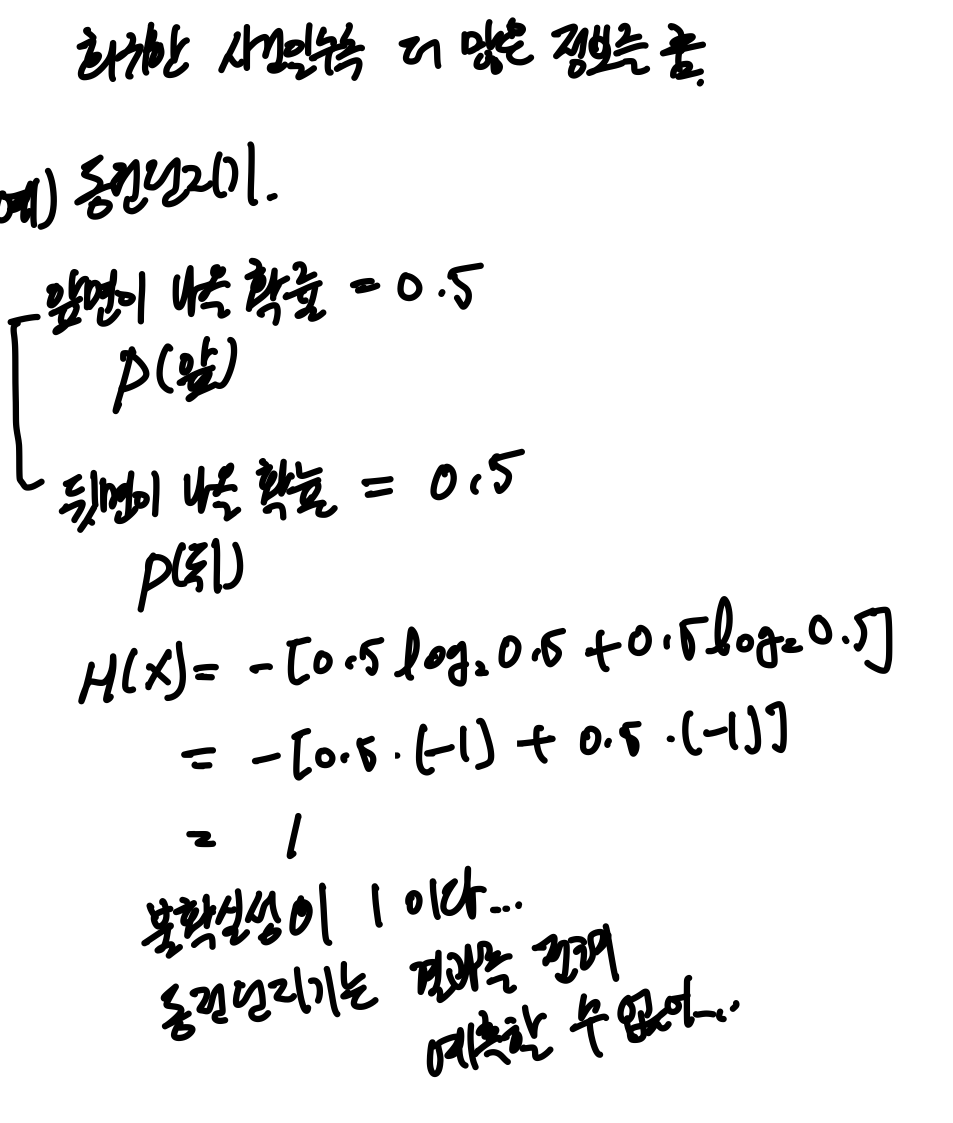 희귀한 사건일수록 더 많은 정보를 줌.
예) 동전던지기.
앞면이 나올 확률 = 0.5
P(앞)
뒷면이 나올 확률 = 0.5
P(뒤)
H(X) = -[0.5 log₂ 0.5 + 0.5 log₂ 0.5]
= -[0.5 · (-1) + 0.5 · (-1)]
= 1
불확실성이 1 이다...
동전던지기는 결과를 전혀
예측할 수 없어...